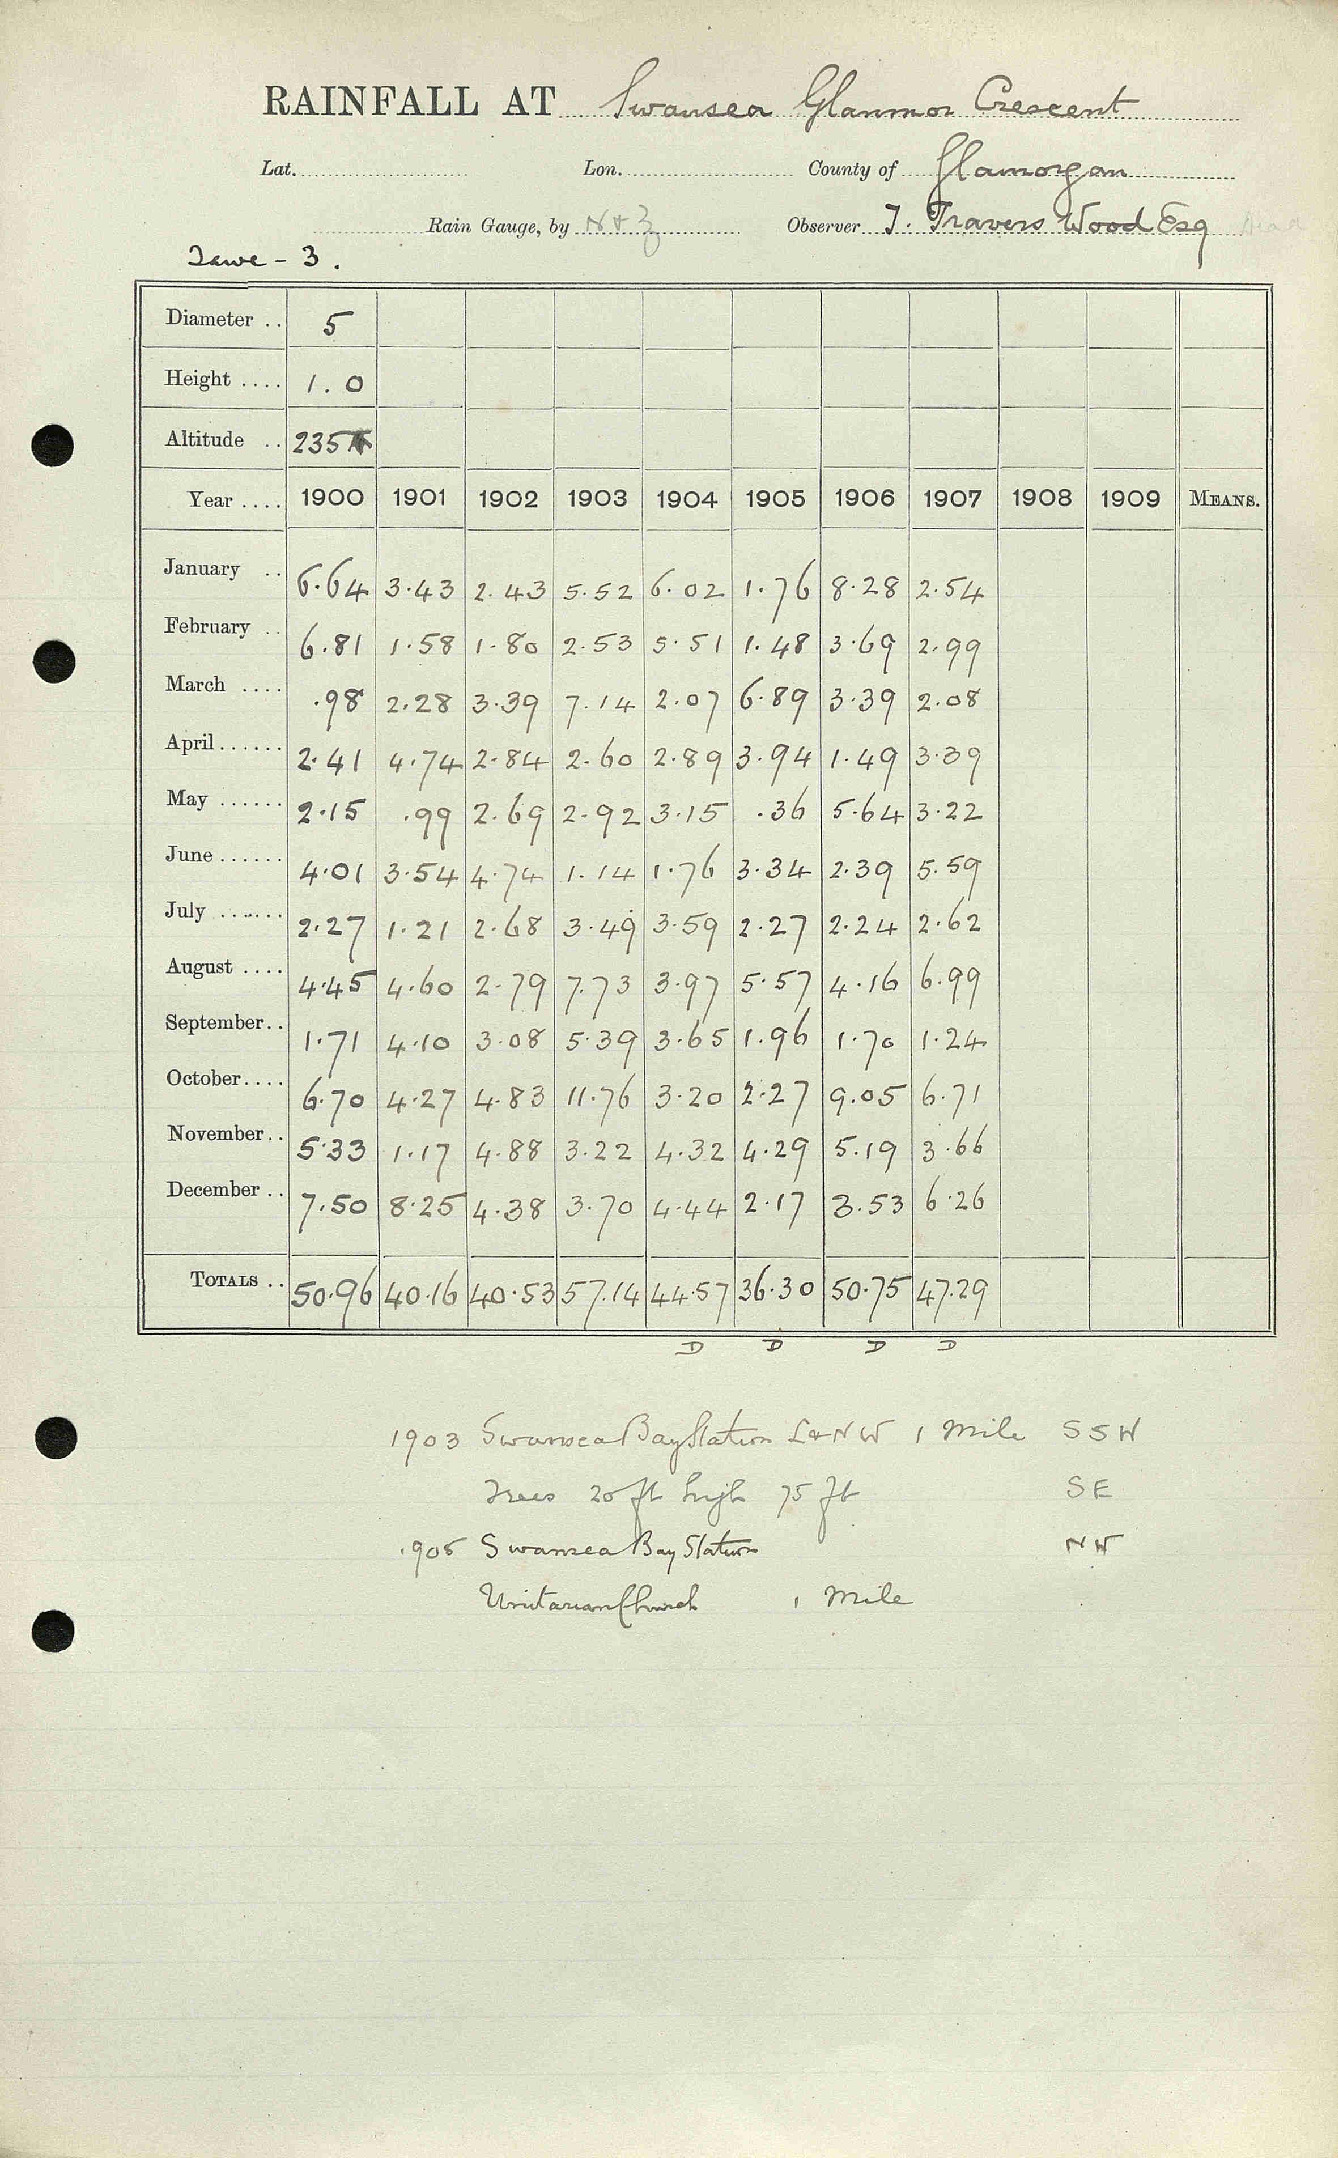 RAINFALL AT Swansea Glanmor Crescent
Lat. Lon. County of Glamorgan
Rain Gauge, by N & Z Observer J. Travers Wood Esq
Tawe - 3.
Diameter .. 5
Height .... 1.0
Altitude .. 235
Year .... 1900 1901 1902 1903 1904 1905 1906 1907 1908 1909 MEANS.
January .. 6.64 3.43 2.43 5.52 6.02 1.76 8.28 2.54
February .. 6.81 1.58 1.80 2.53 5.51 1.48 3.69 2.99
March .... .98 2.28 3.39 7.14 2.07 6.89 3.39 2.08
April ...... 2.41 4.74 2.84 2.60 2.89 3.94 1.49 3.39
May ...... 2.15 .99 2.69 2.92 3.15 .36 5.64 3.22
June ...... 4.01 3.54 4.74 1.14 1.76 3.34 2.39 5.59
July ...... 2.27 1.21 2.68 3.49 3.59 2.27 2.24 2.62
August .... 4.45 4.60 2.79 7.73 3.97 5.57 4.16 6.99
September .. 1.71 4.10 3.08 5.39 3.65 1.96 1.70 1.24
October .... 6.70 4.27 4.83 11.76 3.20 2.27 9.05 6.71
November .. 5.33 1.17 4.88 3.22 4.32 4.29 5.19 3.66
December .. 7.50 8.25 4.38 3.70 4.44 2.17 3.53 6.26
TOTALS .. 50.96 40.16 40.53 57.14 44.57 36.30 50.75 47.29
D D D D
1903 Swansea Bay Station L & N W 1 Mile SSW
Trees 20 ft high 75 ft SE
1905 Swansea Bay Station NW
Unitarian Church 1 Mile